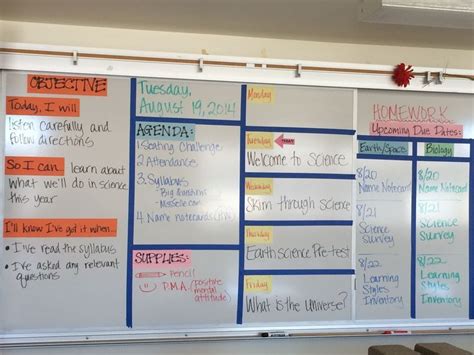 OBJECTIVE
Today, I will
listen carefully and
follow directions
So I can... learn about
what we'll do in science
this year
I'll know I've got it when...
• I've read the syllabus
• I've asked any relevant
questions
Tuesday,
August 19, 2014
AGENDA:
1 Seating Challenge
2 Attendance
3. Syllabus
4. Name notecards (HW)
SUPPLIES:
pencil
P.M.A. (positive
mental
attitude)
Monday
Tuesday
Welcome to Science
Wednesday
Skim through Science
Thursday
Earth Science Pre-test
Friday
What is the Universe?
HOMEWORK
Upcoming Due Dates:
Earth/Space
8/20
Name Notecard
8/21
Science
Survey
8/22
Learning
Styles
Inventory
Biology
8/20
Name Notecard
8/21
Science
Survey
8/22
Learning
Styles
Inventory